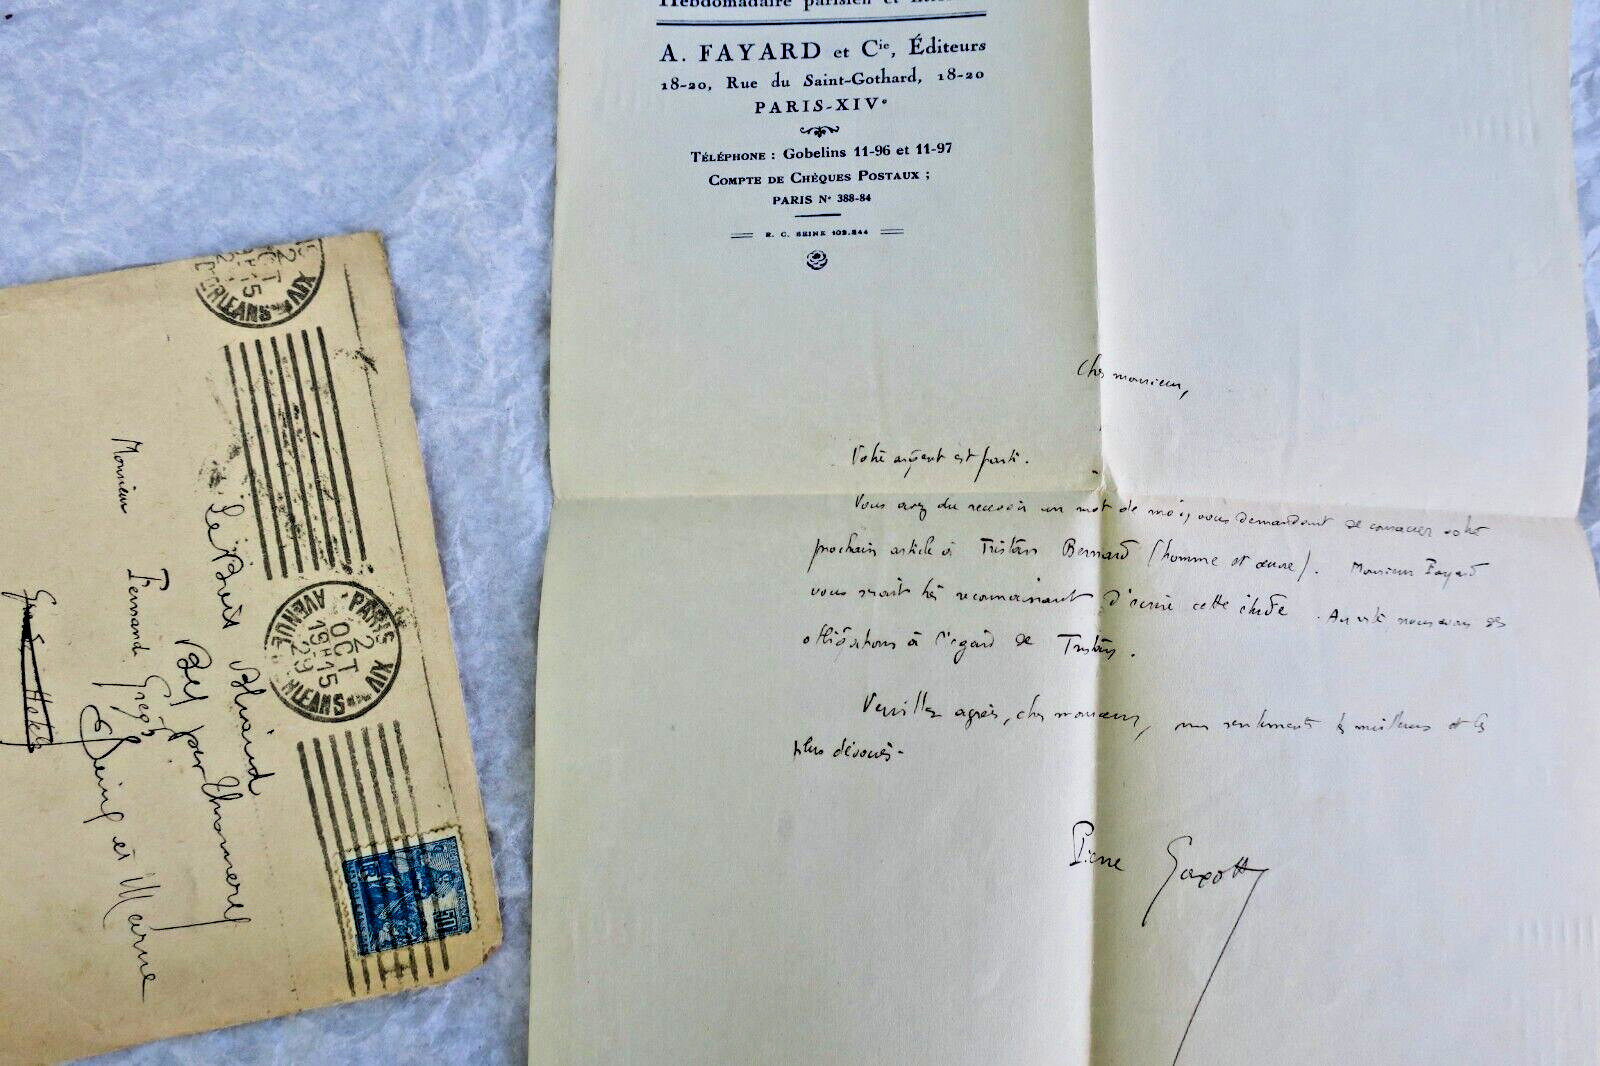 Hebdomadaire parisien et
A. FAYARD et Cie, Éditeurs
18-20, Rue du Saint-Gothard, 18-20
PARIS-XIVe
TÉLÉPHONE : Gobelins 11-96 et 11-97
COMPTE DE CHÈQUES POSTAUX ;
PARIS No 388-84
R. C. SEINE 102.244
Cher monsieur,
Votre argent est parti.
Vous avez du recevoir un mot de moi, vous demandant de consacrer votre
prochain article à Tristan Bernard (homme et œuvre). Monsieur Fayard
vous serait très reconnaissant d'écrire cette étude. nous avons des
obligations à l'égard de Tristan.
Veuillez agréer, cher monsieur, mes sentiments les meilleurs et les
plus dévoués.
Pierre Gaxotte
Monsieur
Fernand Gregh
Le Bois Blaiaid
By par Thomery
Seine et Marne
PARIS XIV
AVENUE D'ORLEANS
2 OCT
19H15
29
ORLEANS XIV
50c